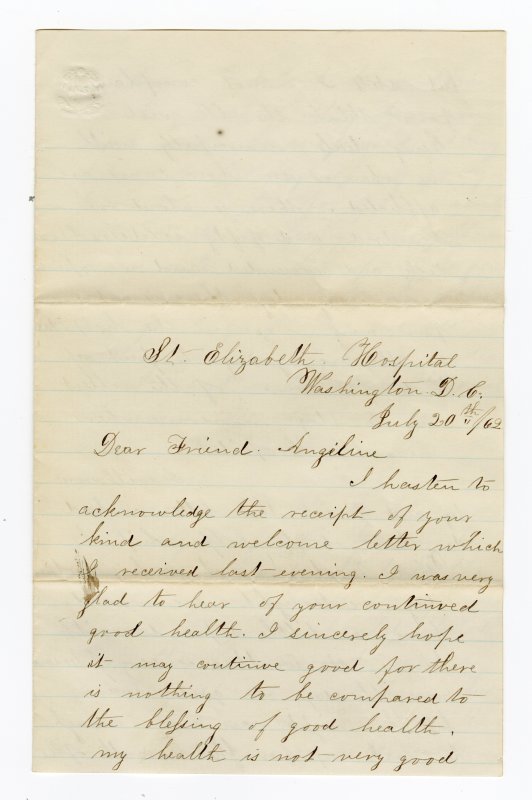 St. Elizabeth. Hospital
Washington. D. C.
July 20th/62
Dear Friend. Angeline
I hasten to
acknowledge the receipt of your
kind and welcome letter which
I received last evening. I was very
glad to hear of your continued
good health. I sincerely hope
it may continue good for there
is nothing to be compared to
the blessing of good health.
my health is not very good